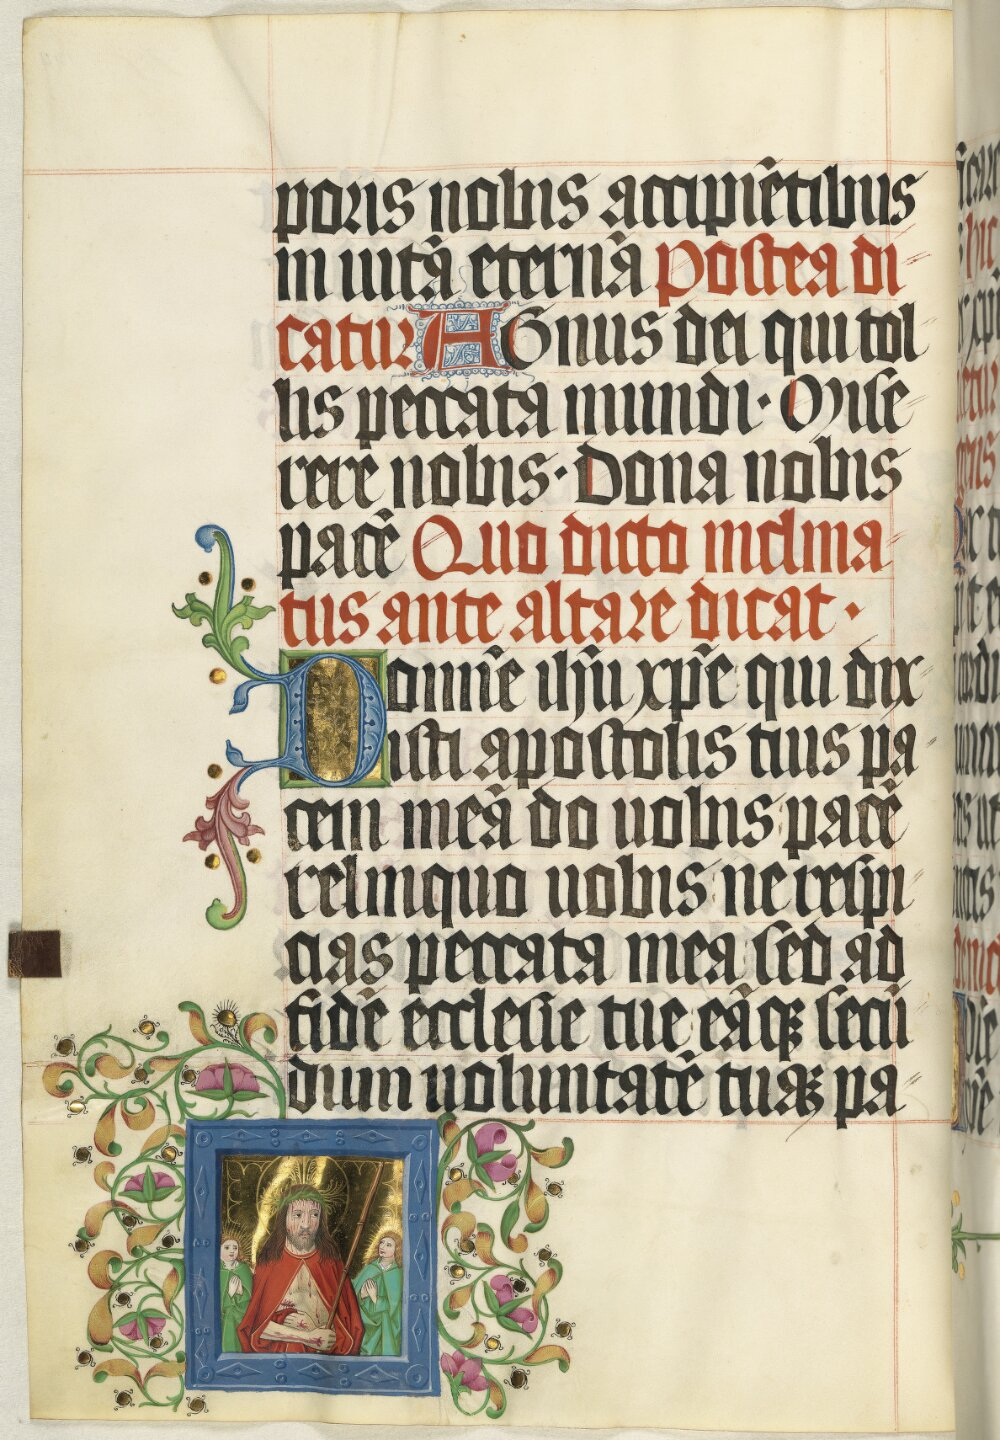 poris nobis accipiētibus
in uitā eternā Postea di
catur AGnus dei qui tol
lis peccata mundi · Mise
rere nobis · Dona nobis
pacē Quo dicto inclina
tus ante altare dicat ·
Domīe ihū xpē qui dix
isti apostolis tuis pa
cem meā do uobis pacē
relinquo uobis ne respi
cias peccata mea sed ad
fidē ecclesie tue eāqꝫ secū
dum uoluntatē tuaꝫ pa